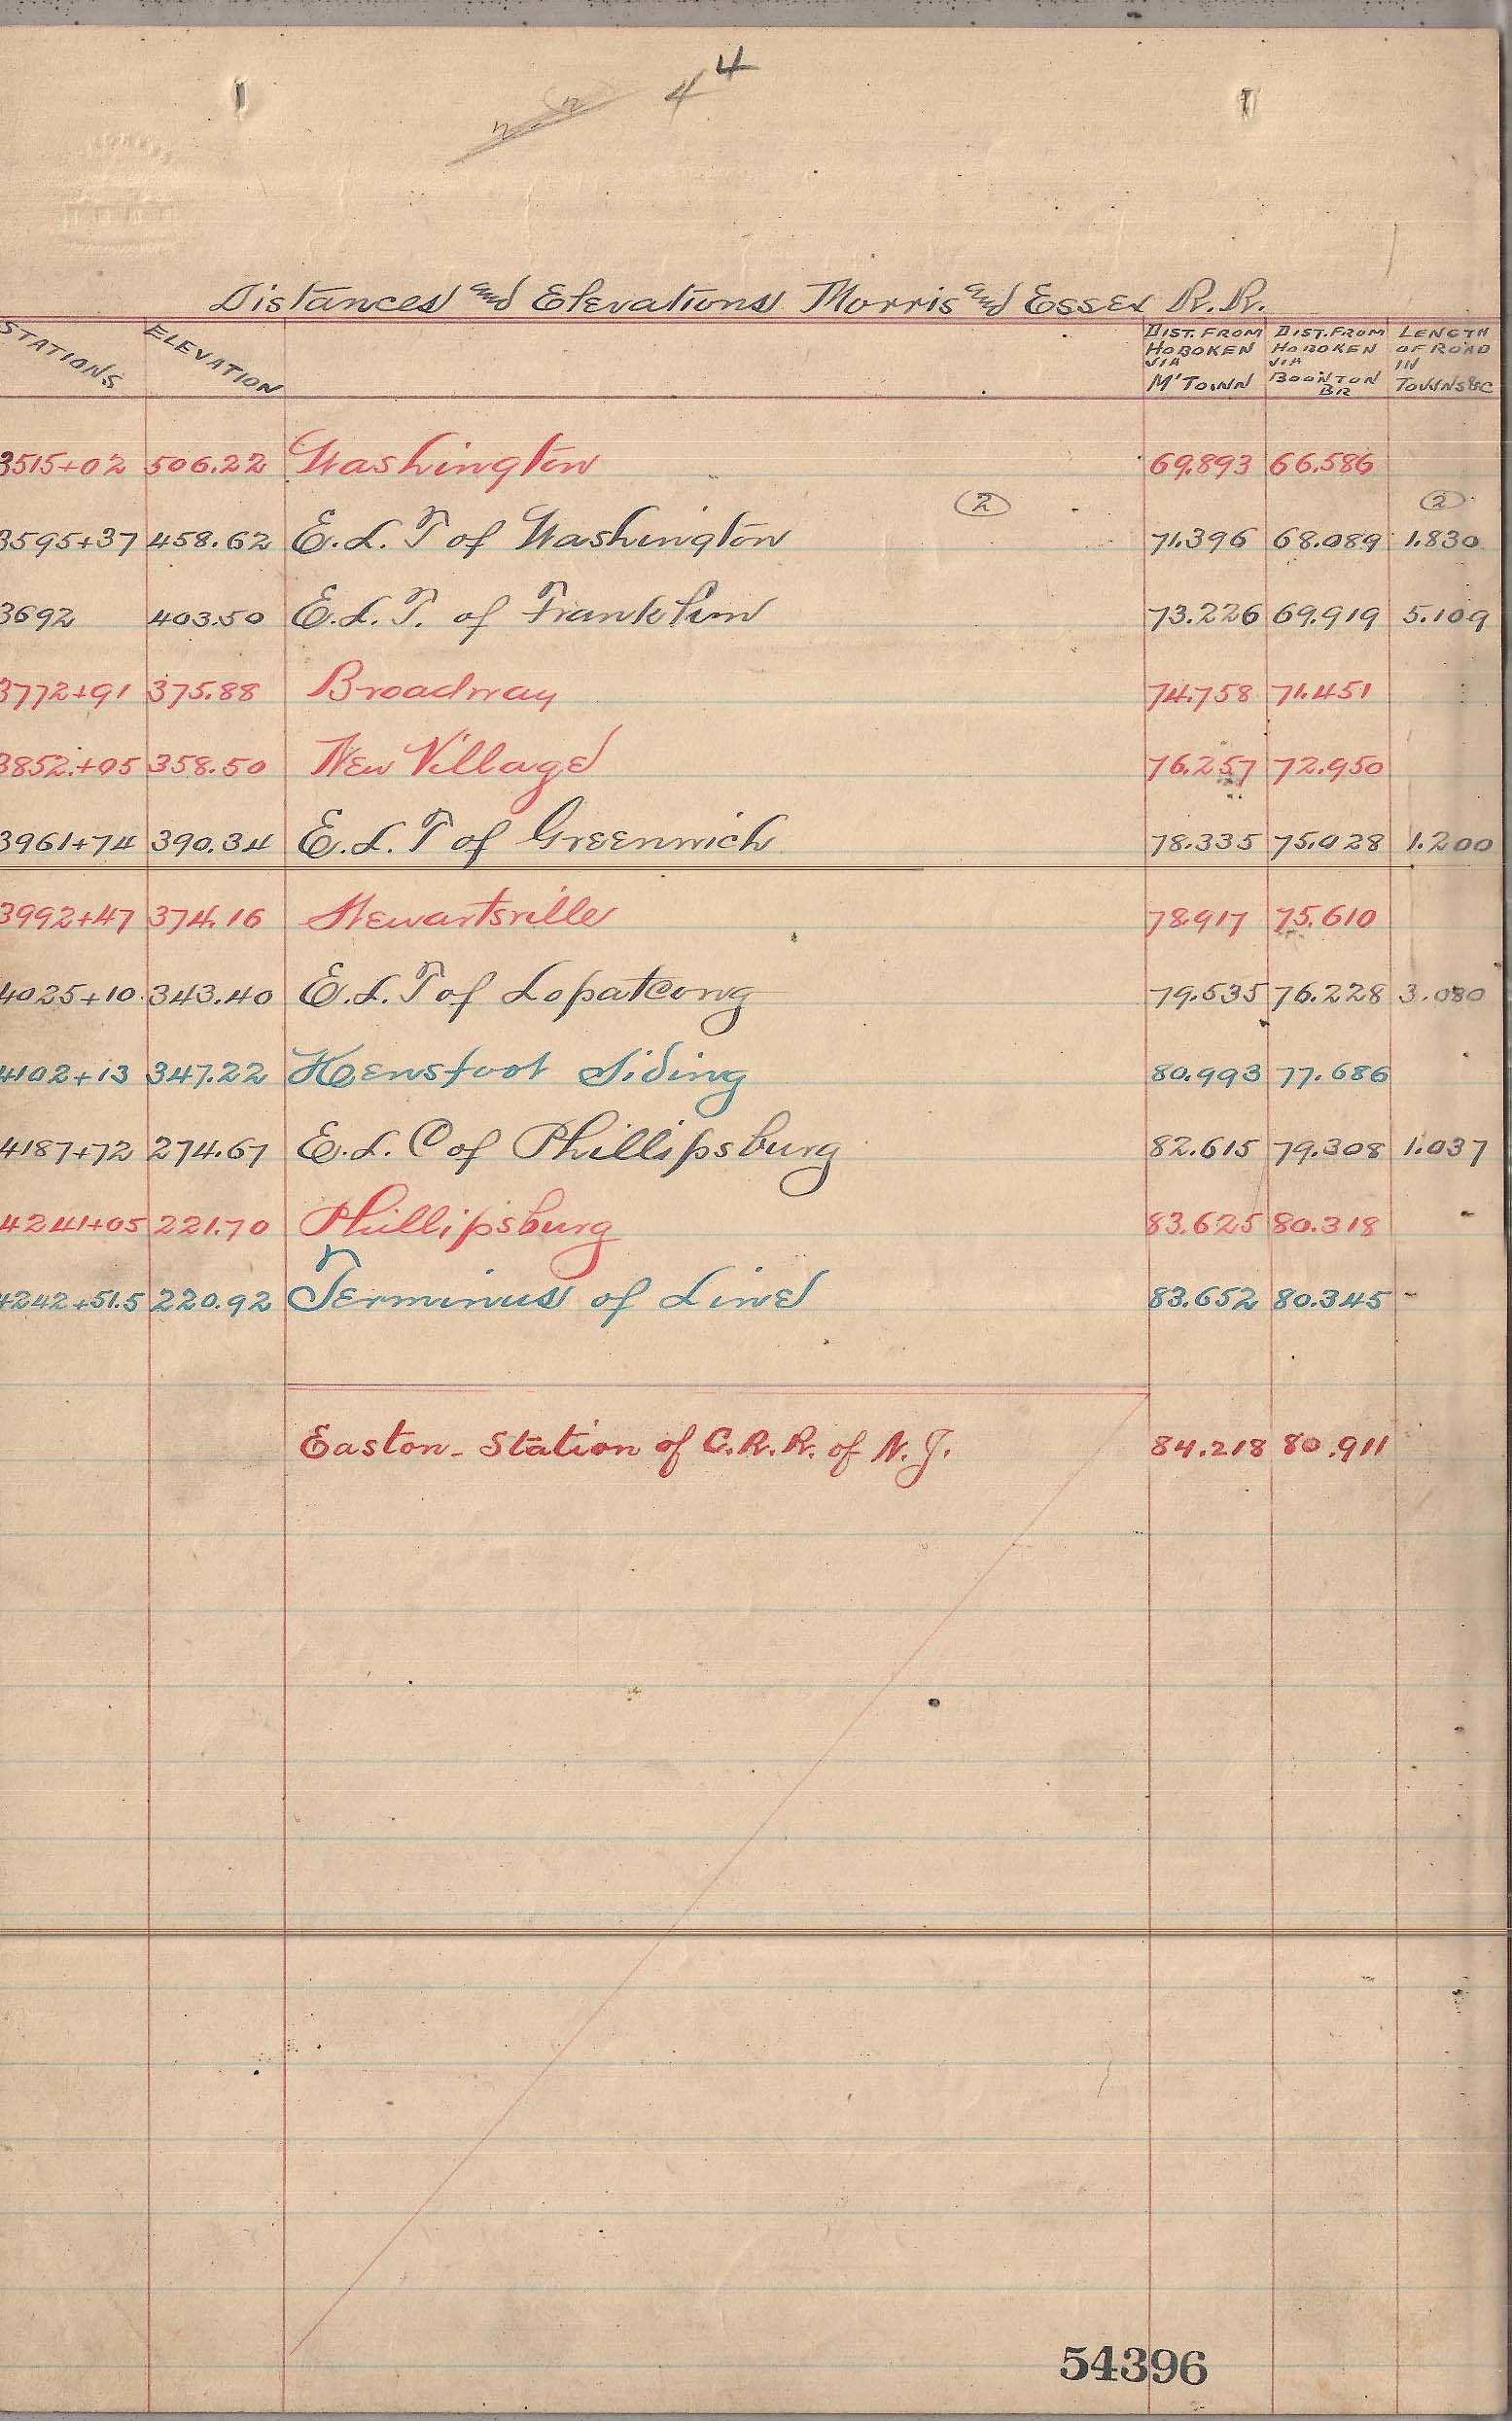 4 4
Distances and Elevations Morris and Essex R.R.
STATIONS ELEVATION DIST. FROM HOBOKEN VIA M'TOWN DIST. FROM HOBOKEN VIA BOONTON BR LENGTH OF ROAD IN TOWNS &C
3515+02 506.22 Washington 69.893 66.586
2 2
3595+37 458.62 E.L.T of Washington 71.396 68.089 1.830
3692 403.50 E.L.T. of Franklin 73.226 69.919 5.109
3772+91 375.88 Broadway 74.758 71.451
3852+05 358.50 New Village 76.257 72.950
3961+74 390.34 E.L.T of Greenwich 78.335 75.028 1.200
3992+47 374.16 Stewartsville 78.917 75.610
4025+10 343.40 E.L.T of Lopatcong 79.535 76.228 3.080
4102+13 347.22 Hensfoot Siding 80.993 77.686
4187+72 274.67 E.L.C of Phillipsburg 82.615 79.308 1.037
4241+05 221.70 Phillipsburg 83.625 80.318
4242+51.5 220.92 Terminus of Line 83.652 80.345
Easton - Station of C.R.R. of N.J. 84.218 80.911
54396